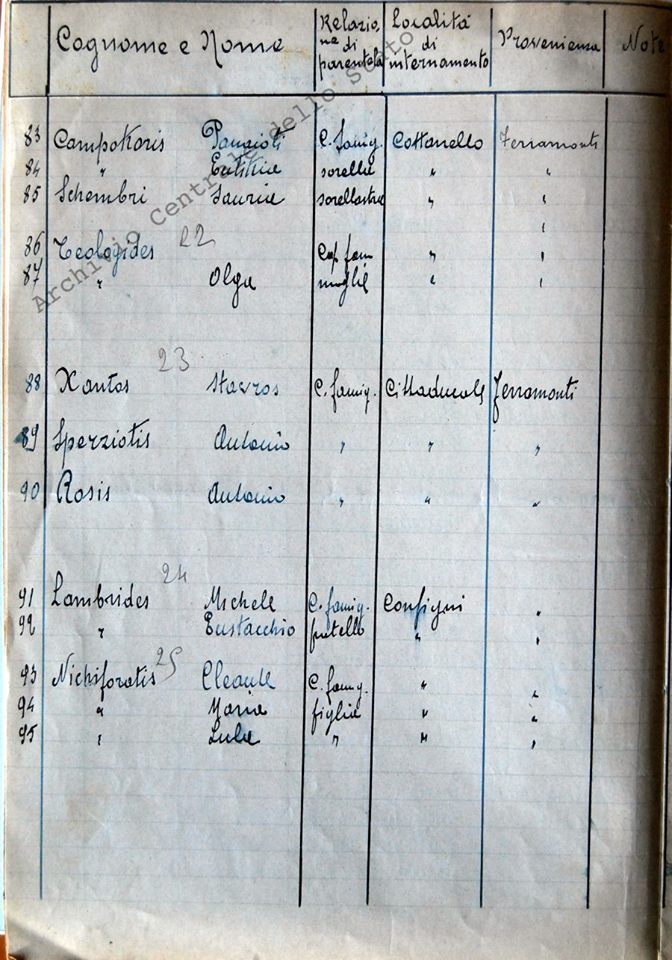 Cognome e Nome Relazione di parentela Località di internamento Provenienza Note
Archivio Centrale dello Stato
83 Campokoris Panaioti C. famig. Cottanello Ferramonti
84 " Eutikia sorella " "
85 Schembri Sauria sorellastra " "
"
22
86 Teologides Cap fam " "
87 " Olga moglie " "
23
88 Xantos Stavros C. famig. Cittaducale Ferramonti
89 Sperziotis Antonio " " "
90 Rosis Antonio " " "
24
91 Lambrides Michele C. famig. Configni "
92 " Eustacchio fratello " "
25
93 Nichiforatis Cleante C. famig. " "
94 " Maria figlia " "
95 " Lula " " "